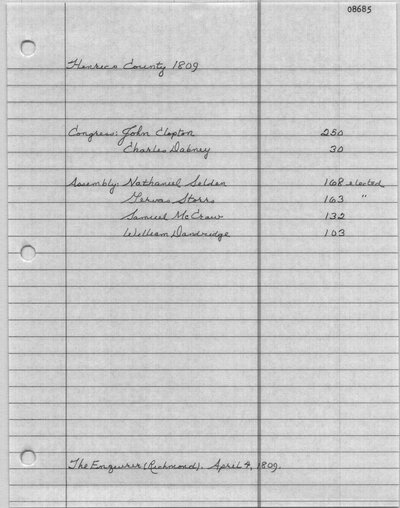 08685
Henrico County 1809
Congress: John Clopton 250
Charles Dabney 30
Assembly: Nathaniel Selden 168 elected
Gervas Storrs 163 "
Samuel McCraw 132
William Dandridge 103
The Enquirer (Richmond). April 4, 1809.